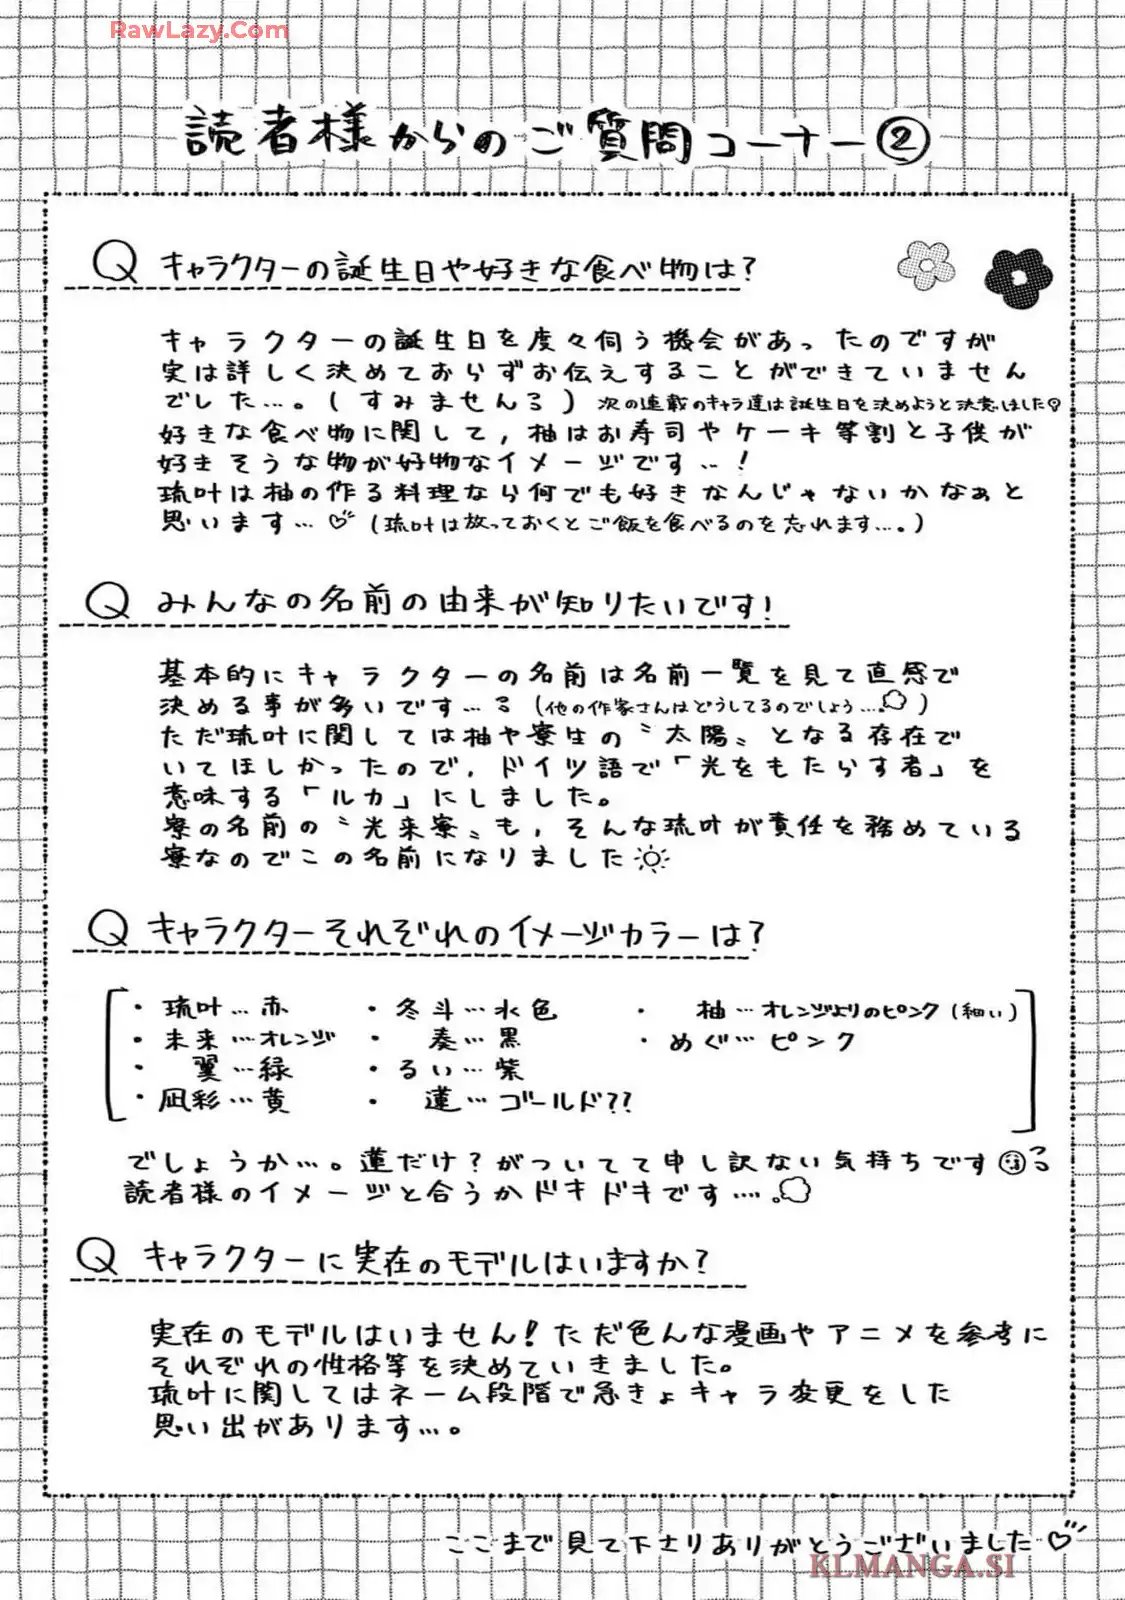 RawLazy.Com
読者様からのご質問コーナー②
Q キャラクターの誕生日や好きな食べ物は?
キャラクターの誕生日を度々伺う機会があったのですが
実は詳しく決めておらずお伝えすることができていません
でした…。(すみません)次の連載のキャラ達は誕生日を決めようと決意しました
好きな食べ物に関して,柚はお寿司やケーキ等割と子供が
好きそうな物が好物なイメージです…!
琉叶は柚の作る料理なら何でも好きなんじゃないかなぁと
思います…♡(琉叶は放っておくとご飯を食べるのを忘れます…。)
Q みんなの名前の由来が知りたいです!
基本的にキャラクターの名前は名前一覧を見て直感で
決める事が多いです…(他の作家さんはどうしてるのでしょう…)
ただ琉叶に関しては柚や寮生の〝太陽〟となる存在で
いてほしかったので,ドイツ語で「光をもたらす者」を
意味する「ルカ」にしました。
寮の名前の〝光来寮〟も,そんな琉叶が責任を務めている
寮なのでこの名前になりました
Q キャラクターそれぞれのイメージカラーは?
・琉叶…赤 ・冬斗…水色 ・柚…オレンジよりのピンク(細い)
・未来…オレンジ ・奏…黒 ・めぐ…ピンク
・翼…緑 ・るい…紫
・凪彩…黄 ・蓮…ゴールド??
でしょうか…。蓮だけ?がついてて申し訳ない気持ちです
読者様のイメージと合うかドキドキです…。
Q キャラクターに実在のモデルはいますか?
実在のモデルはいません!ただ色んな漫画やアニメを参考に
それぞれの性格等を決めていきました。
琉叶に関してはネーム段階で急きょキャラ変更をした
思い出があります…。
ここまで見て下さりありがとうございました♡
KLMANGA.SI